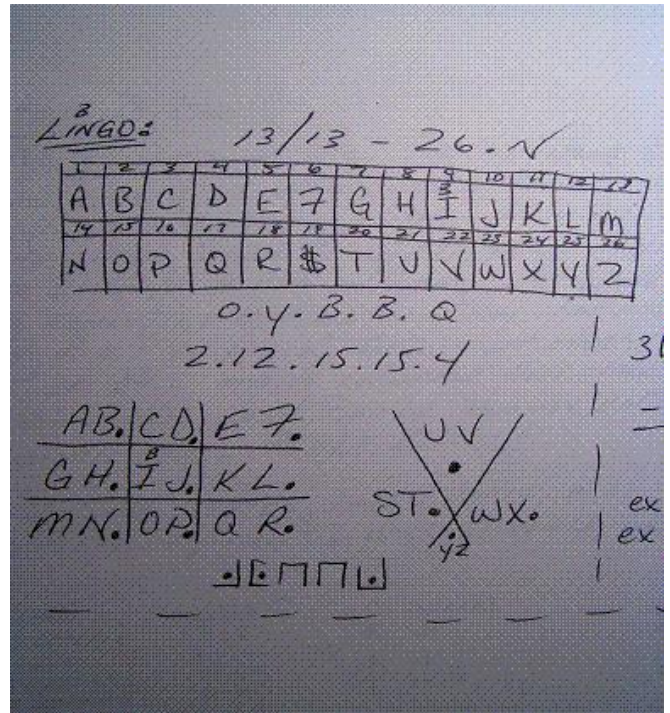 B
LINGO:
13/13 - 26.N
1 2 3 4 5 6 7 8 9 10 11 12 13
A B C D E 7 G H I J K L M
B
14 15 16 17 18 19 20 21 22 23 24 25 26
N O P Q R $ T U V W X Y Z
O.Y.B.B.Q
2.12.15.15.4
AB. CD. E7.
GH. IJ. KL.
B
MN. OP. QR.
UV
ST. WX.
YZ
ex
ex